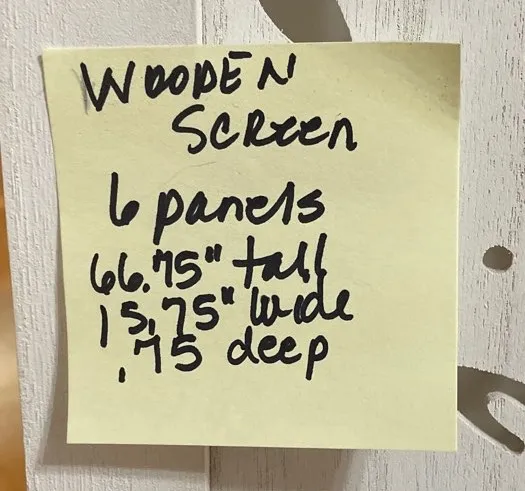 WOODEN
SCREEN
6 panels
66.75" tall
15.75" wide
.75 deep